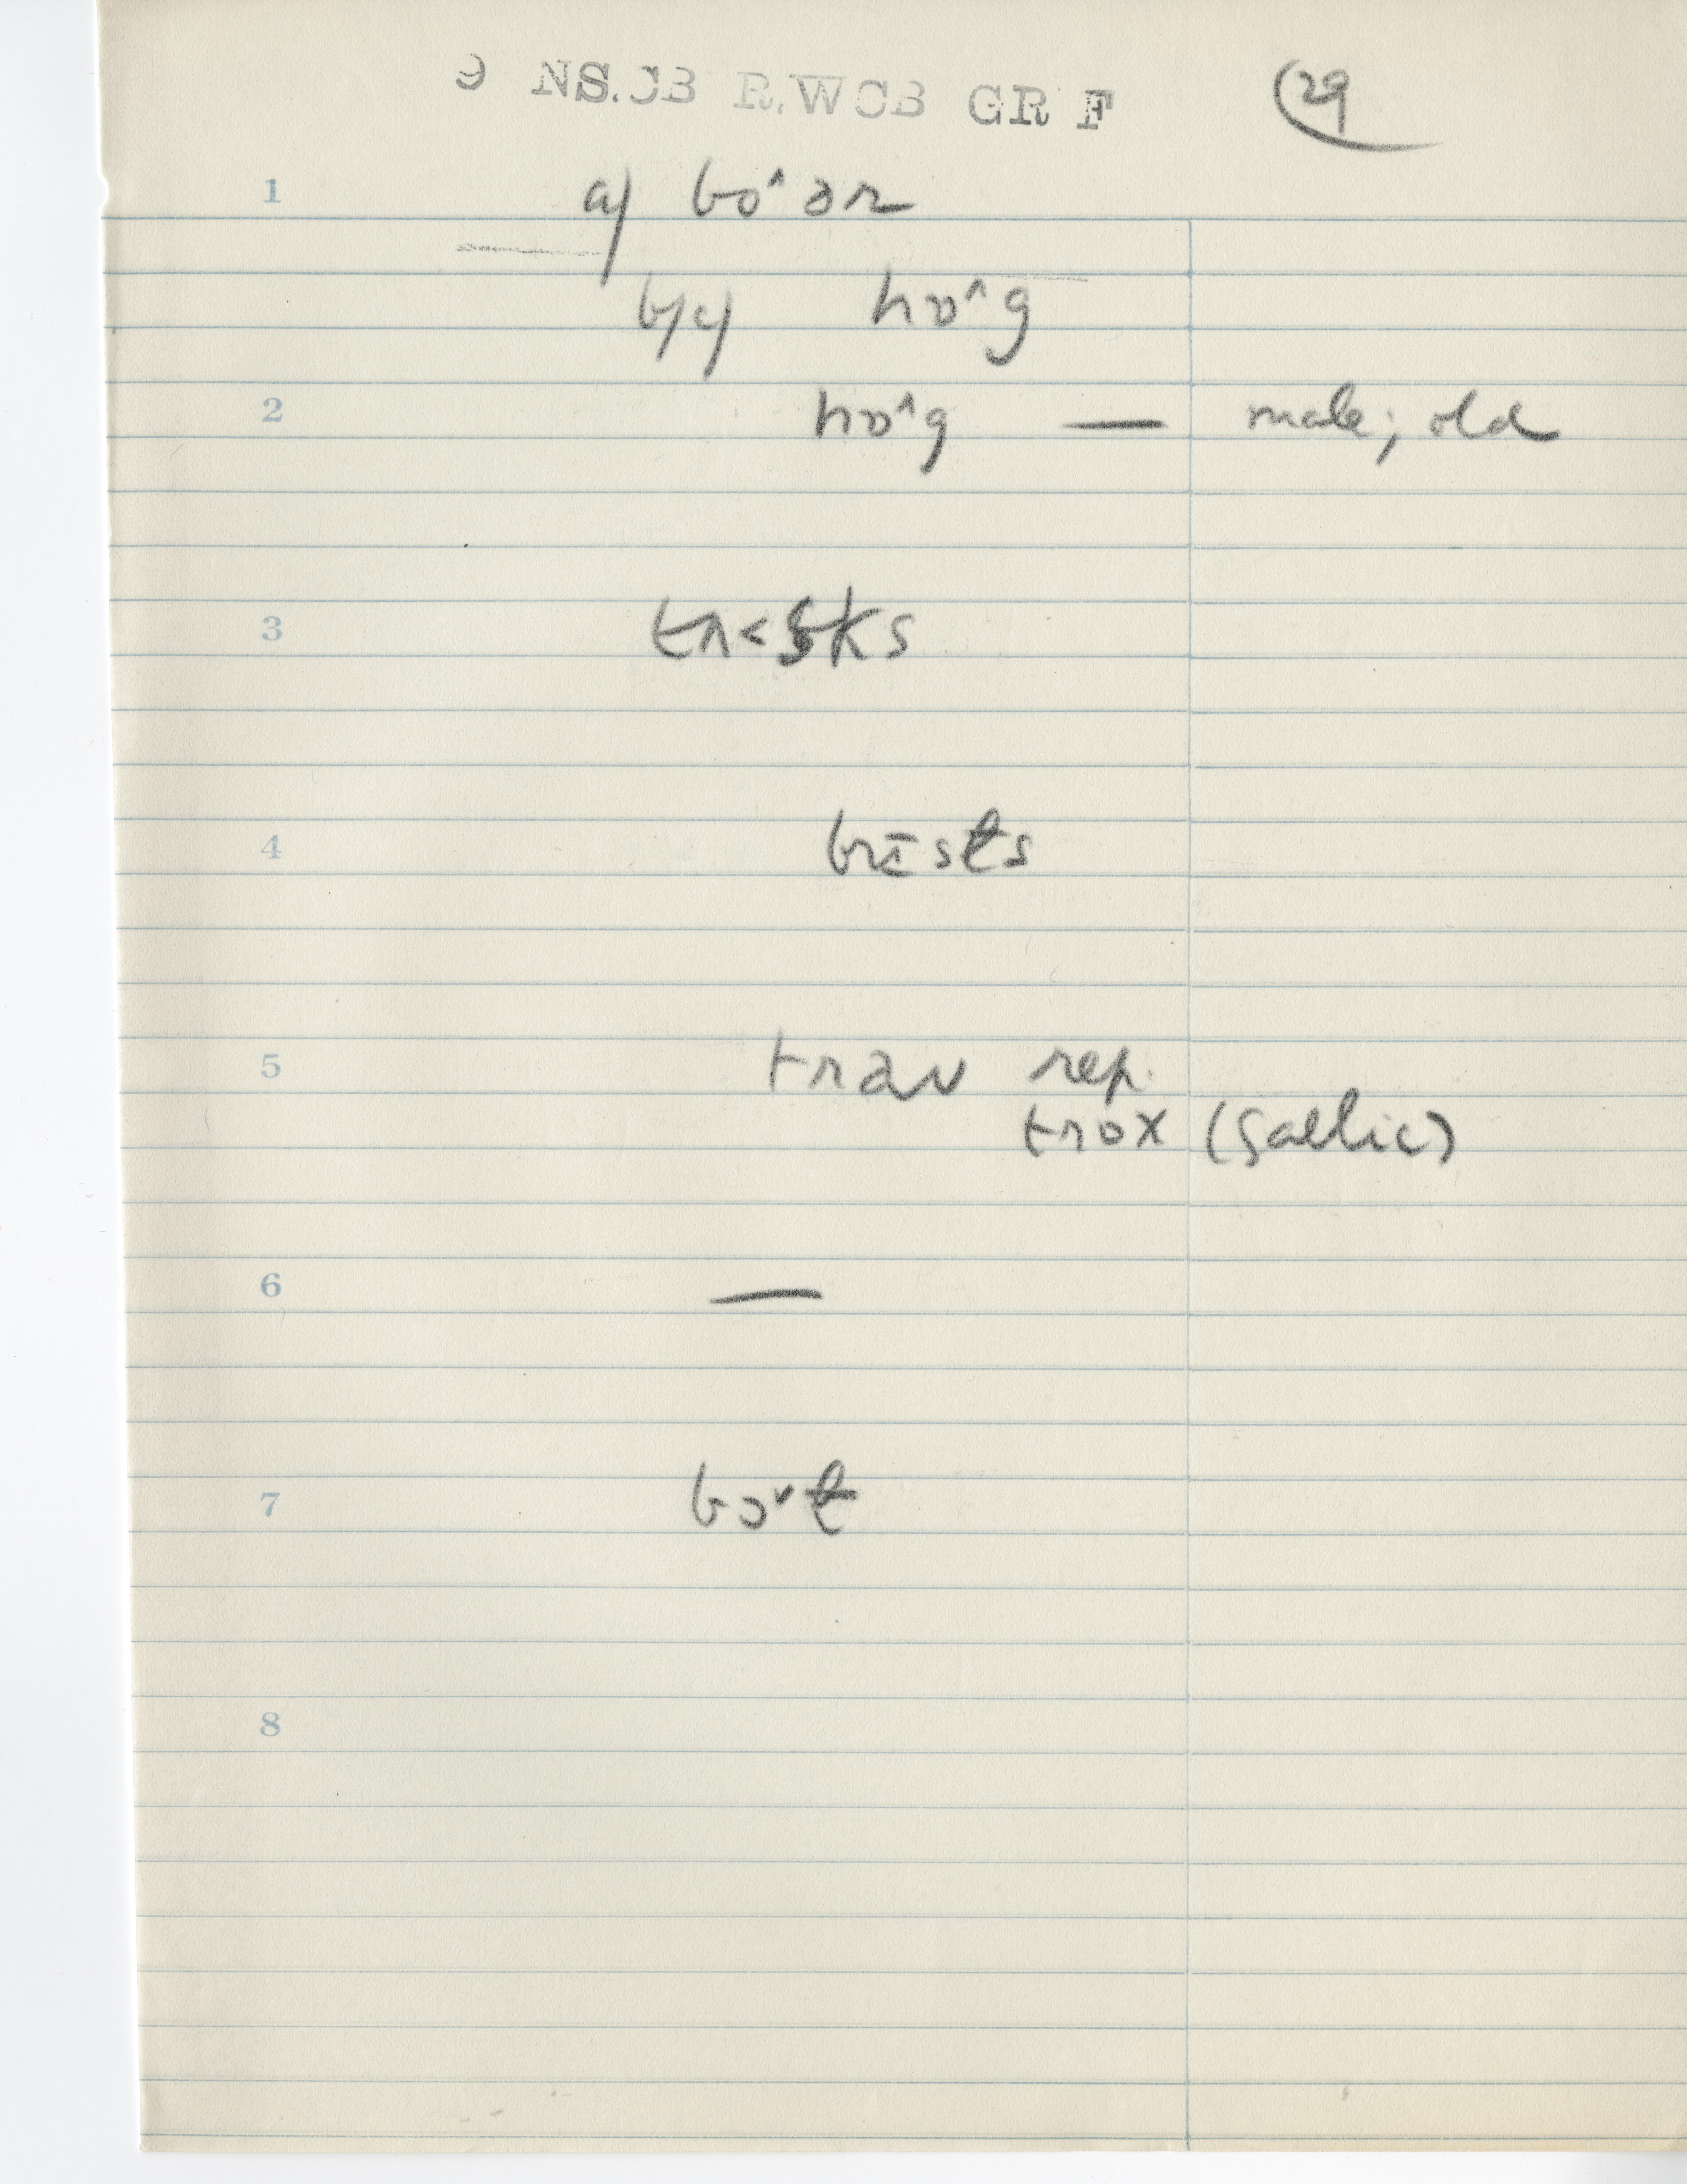 9 NS.CB R.WCB GR F (29
1 a) bo^ ər
b/c) hɒ^g
2 hɒ^g — male; old
3 ks
4 brɪsts
5 rep.
trox (Gaelic)
6 —
7 bɔˇt
8